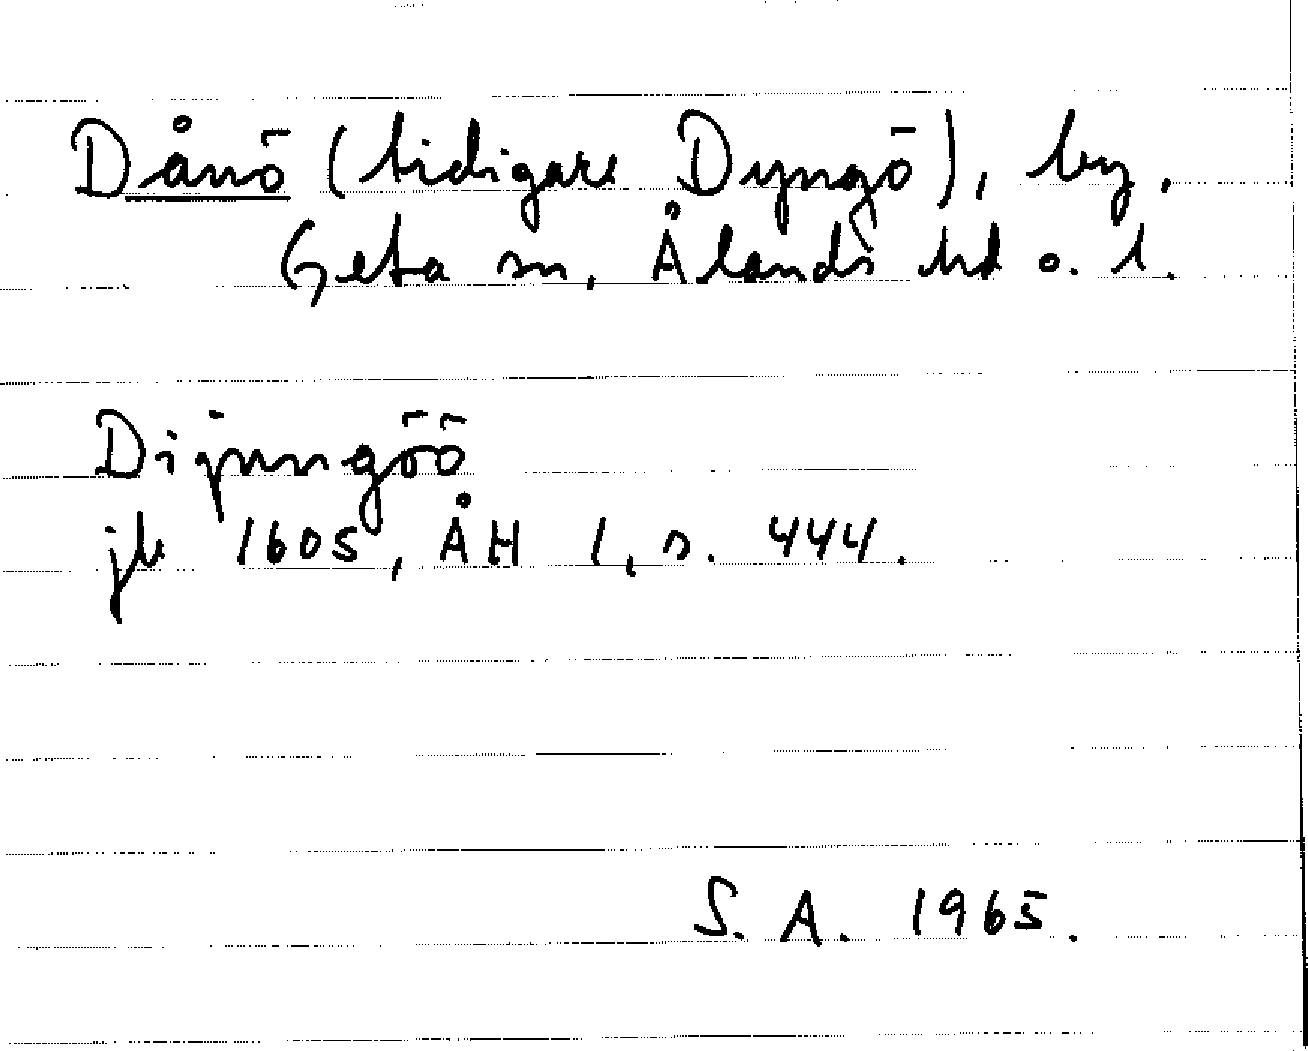 Dånö (tidigare Dyngö), by,
Geta sn, Ålands hd o. l.
Dijungöö
jb 1605, ÅH 1, s. 444.
S. A. 1965.